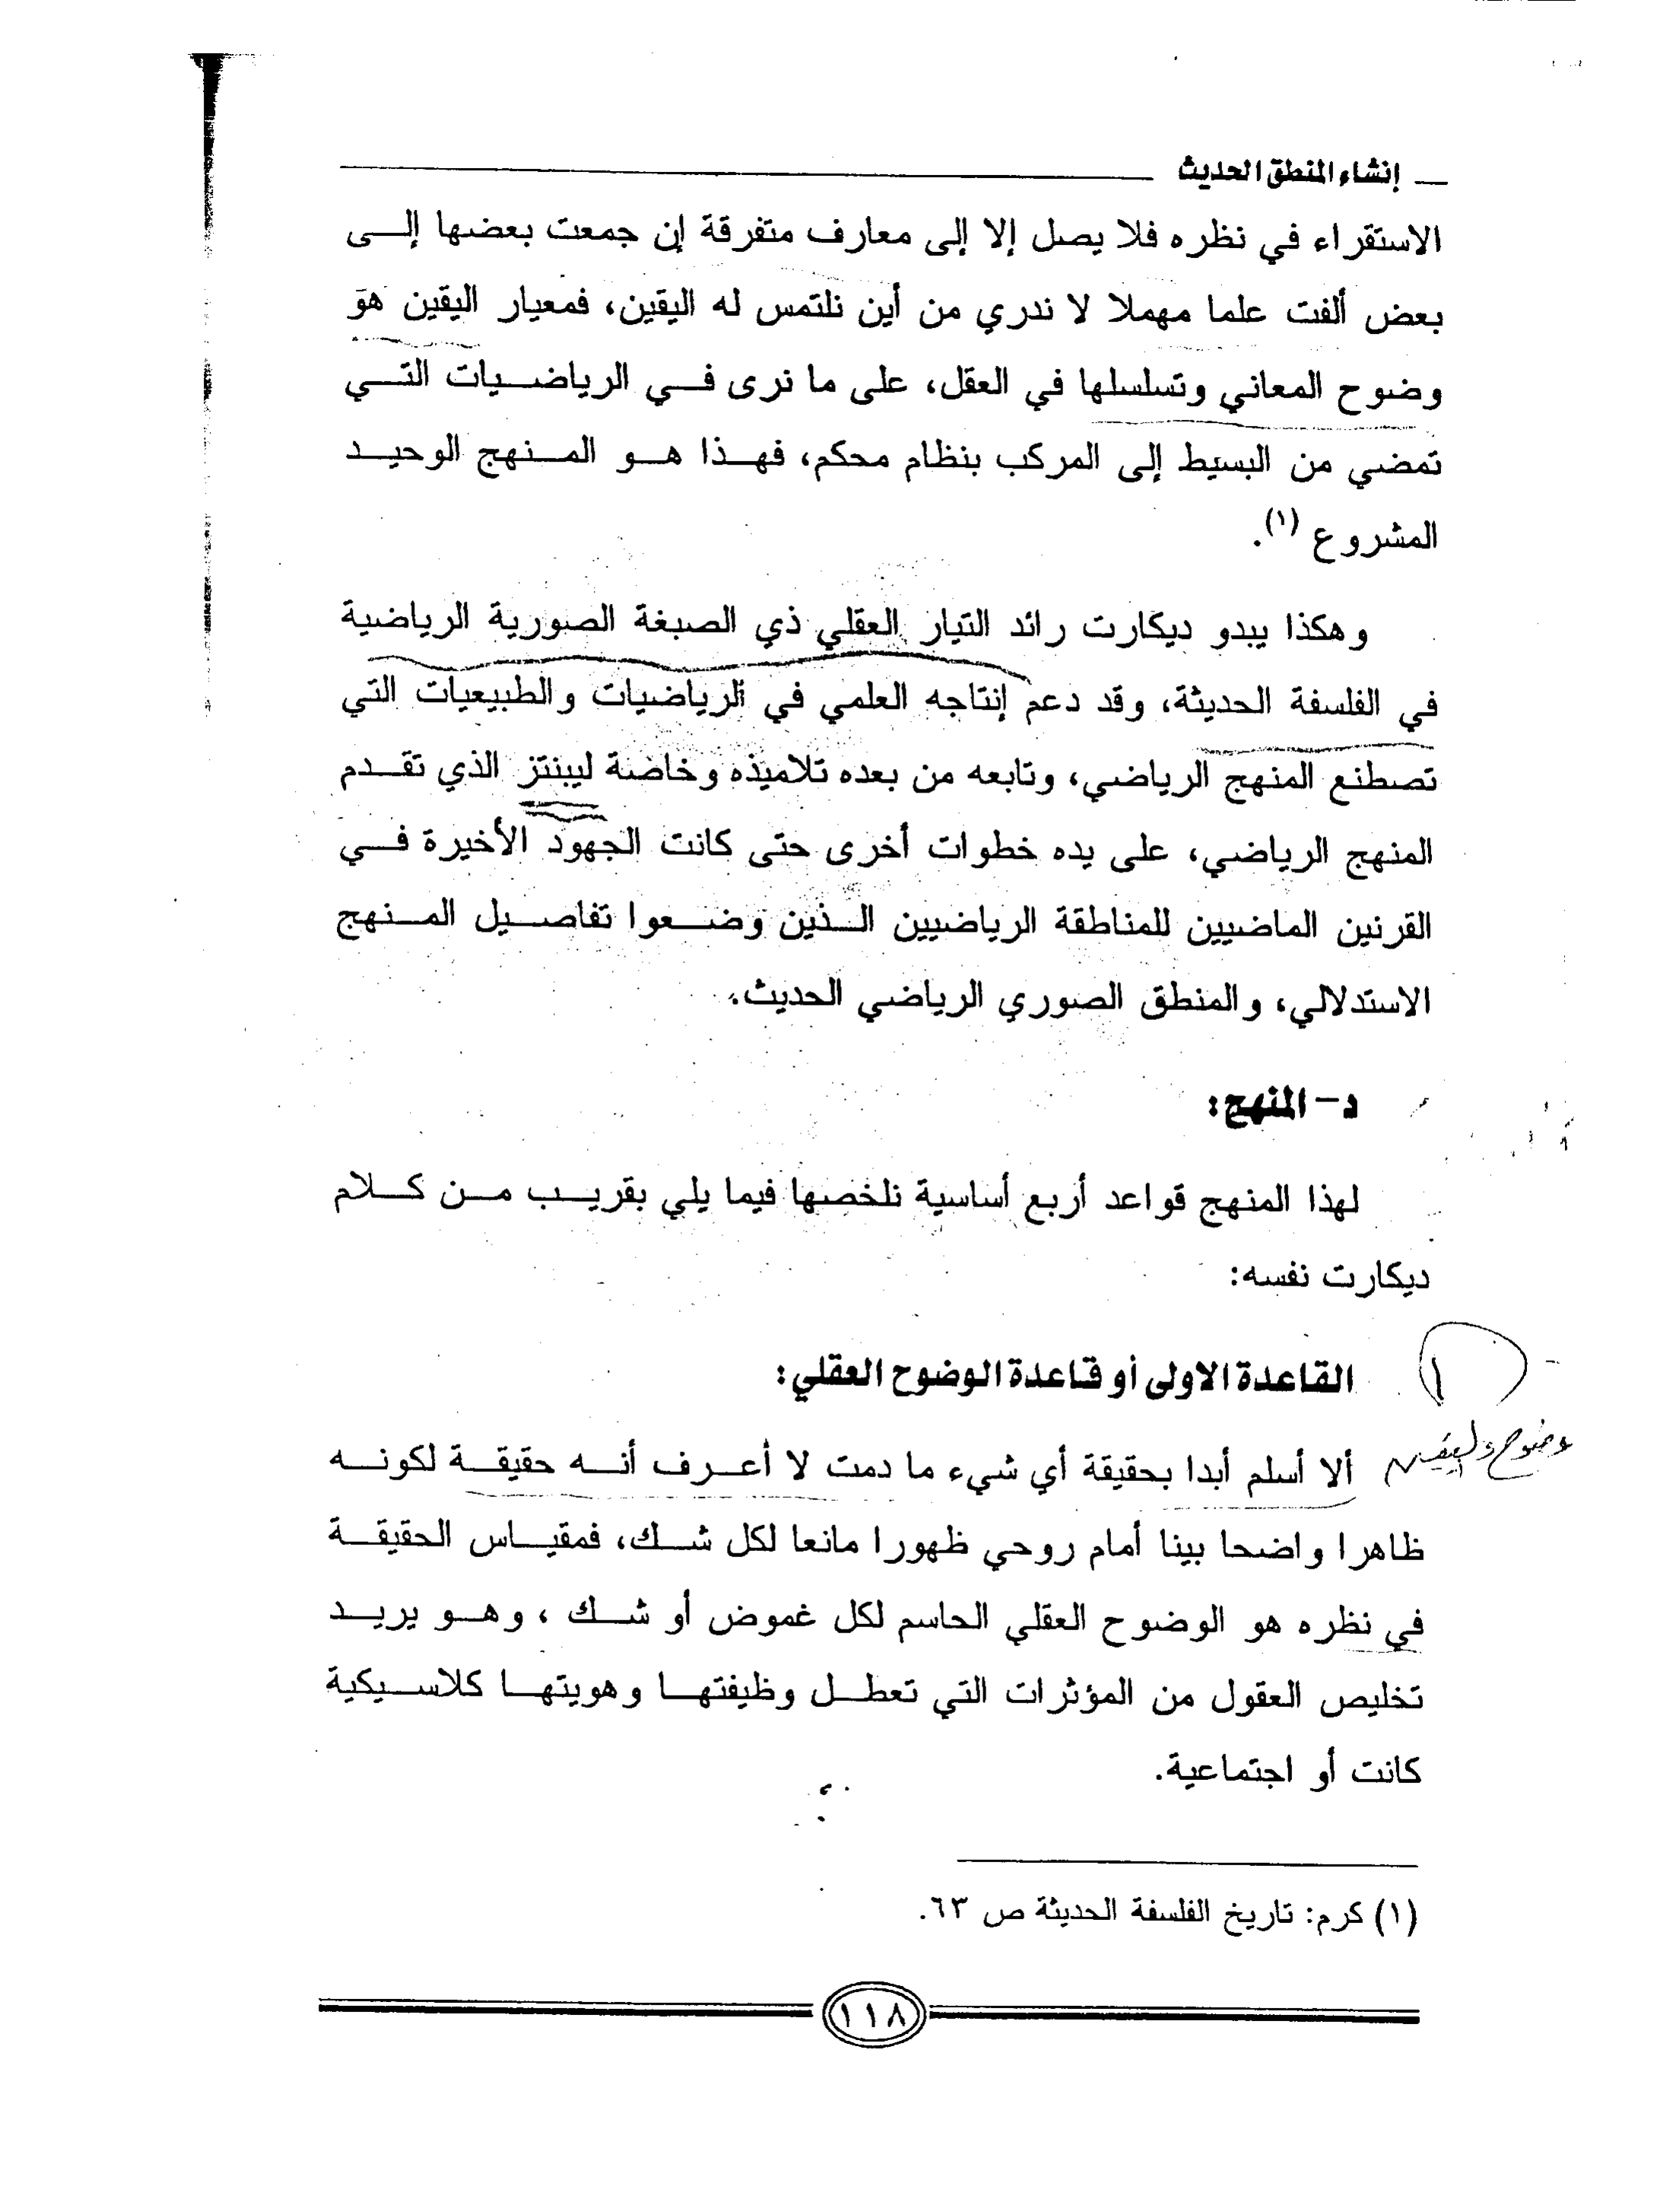 إنشاء المنطق الحديث
الاستقراء في نظره فلا يصل إلا إلى معارف متفرقة إن جمعت بعضها إلى
بعض ألفت علما مهملا لا ندري من أين نلتمس له اليقين، فمعيار اليقين هو
وضوح المعاني وتسلسلها في العقل، على ما نرى في الرياضيات التي
تمضي من البسيط إلى المركب بنظام محكم، فهذا هو المنهج الوحيد
المشروع (١).
وهكذا يبدو ديكارت رائد التيار العقلي ذي الصبغة الصورية الرياضية
في الفلسفة الحديثة، وقد دعم إنتاجه العلمي في الرياضيات والطبيعيات التي
تصطنع المنهج الرياضي، وتابعه من بعده تلاميذه وخاصة ليبنتز الذي تقدم
المنهج الرياضي، على يده خطوات أخرى حتى كانت الجهود الأخيرة في
القرنين الماضيين للمناطقة الرياضيين الذين وضعوا تفاصيل المنهج
الاستدلالي، والمنطق الصوري الرياضي الحديث.
د- المنهج:
لهذا المنهج قواعد أربع أساسية نلخصها فيما يلي بقريب من كلام
ديكارت نفسه:
١ القاعدة الاولى أو قاعدة الوضوح العقلي:
وضوح
ألا أسلم أبدا بحقيقة أي شيء ما دمت لا أعرف أنه حقيقة لكونه
ظاهرا واضحا بينا أمام روحي ظهورا مانعا لكل شك، فمقياس الحقيقة
في نظره هو الوضوح العقلي الحاسم لكل غموض أو شك ، وهو يريد
تخليص العقول من المؤثرات التي تعطل وظيفتها وهويتها كلاسيكية
كانت أو اجتماعية.
(١) كرم: تاريخ الفلسفة الحديثة ص ٦٣.
١١٨